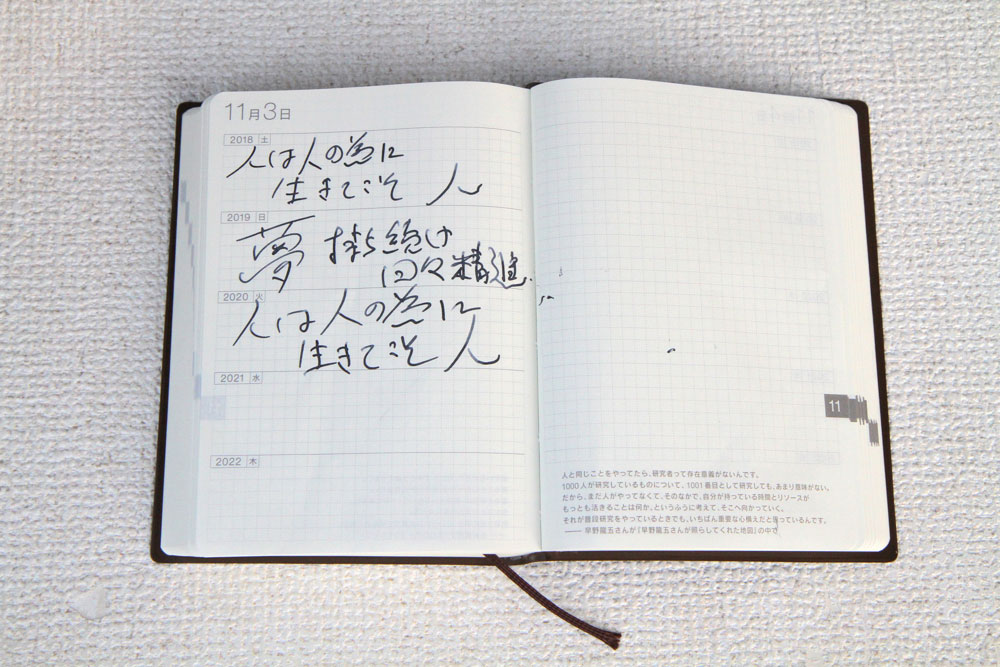 11月3日
2018 土
人は人の為に
生きてこそ 人
2019 日
夢 持ち続け
日々精進.
2020 火
人は人の為に
生きてこそ 人
2021 水
2022 木
11
人と同じことをやってたら、研究者って存在意義がないんです。
1000人が研究しているものについて、1001番目として研究しても、あまり意味がない。
だから、まだ人がやってなくて、そのなかで、自分が持っている時間とリソースが
もっとも活きることは何か。というふうに考えて、そこへ向かっていく。
それが普段研究をやっているときでも、いちばん重要な心構えだと思っているんです。
―― 早野龍五さんが『早野龍五さんが照らしてくれた地図』の中で